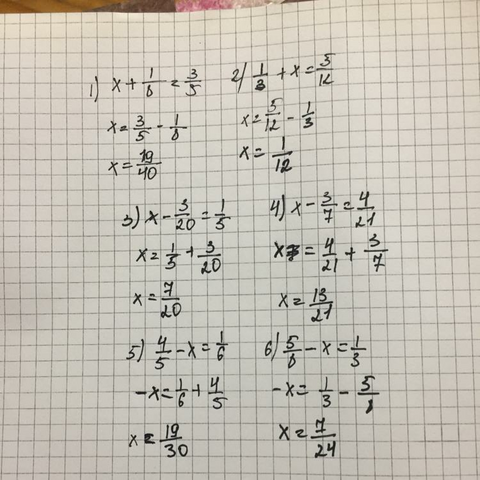 1) x + 1/8 = 3/5
x = 3/5 - 1/8
x = 19/40
2) 1/3 + x = 5/12
x = 5/12 - 1/3
x = 1/12
3) x - 3/20 = 1/5
x = 1/5 + 3/20
x = 7/20
4) x - 3/7 = 4/21
x = 4/21 + 3/7
x = 13/21
5) 4/5 - x = 1/6
-x = 1/6 + 4/5
x = 19/30
6) 5/8 - x = 1/3
-x = 1/3 - 5/8
x = 7/24